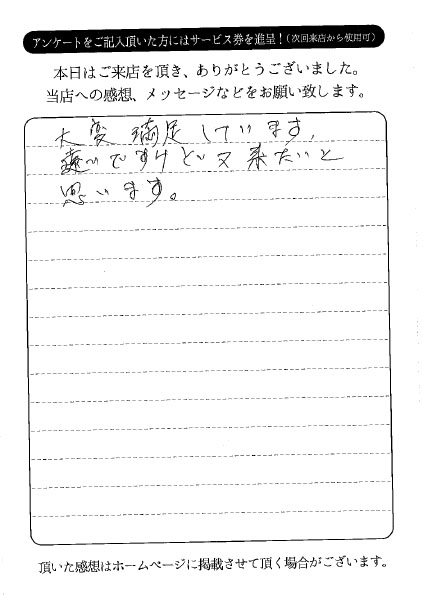 アンケートをご記入頂いた方にはサービス券を進呈！（次回来店から使用可）
本日はご来店を頂き、ありがとうございました。
当店への感想、メッセージなどをお願い致します。
大変満足しています。
遠いですけど又来たいと
思います。
頂いた感想はホームページに掲載させて頂く場合がございます。